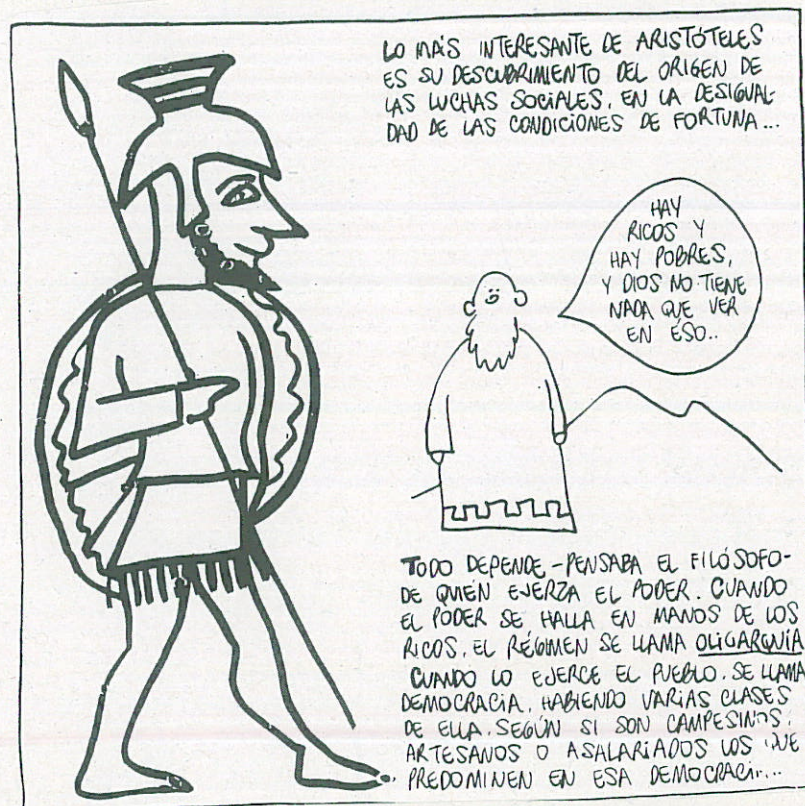 LO MÁS INTERESANTE DE ARISTÓTELES
ES SU DESCUBRIMIENTO DEL ORIGEN DE
LAS LUCHAS SOCIALES, EN LA DESIGUAL-
DAD DE LAS CONDICIONES DE FORTUNA...
HAY
RICOS Y
HAY POBRES,
Y DIOS NO TIENE
NADA QUE VER
EN ESO..
TODO DEPENDE -PENSABA EL FILÓSOFO-
DE QUIÉN EJERZA EL PODER. CUANDO
EL PODER SE HALLA EN MANOS DE LOS
RICOS, EL RÉGIMEN SE LLAMA OLIGARQUÍA
CUANDO LO EJERCE EL PUEBLO, SE LLAMA
DEMOCRACIA, HABIENDO VARIAS CLASES
DE ELLA, SEGÚN SI SON CAMPESINOS,
ARTESANOS O ASALARIADOS LOS QUE
PREDOMINEN EN ESA DEMOCRACI....